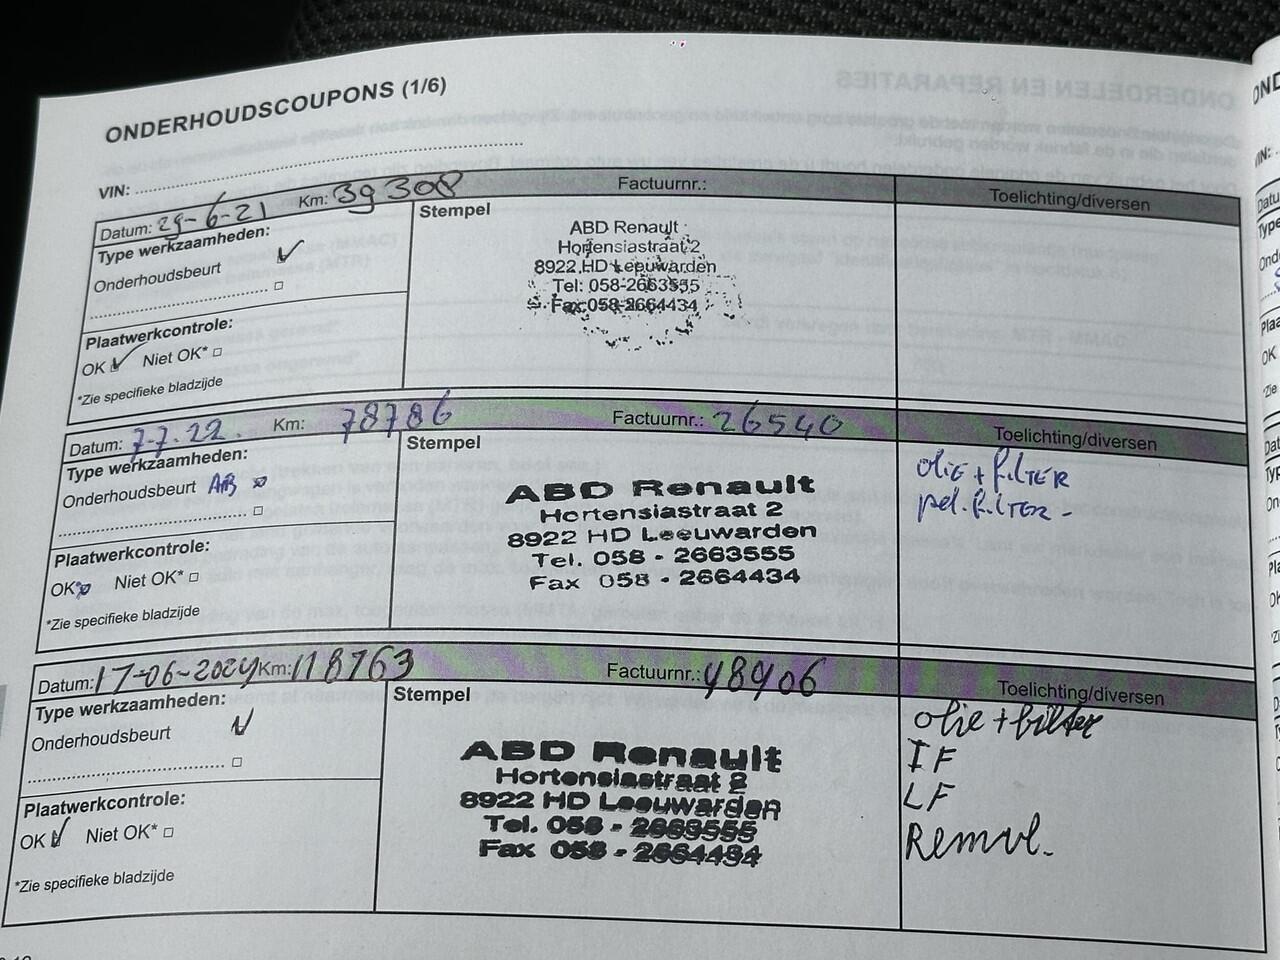 ONDERHOUDSCOUPONS (1/6)
VIN:
Datum: 29-6-21 Km: 39308 Factuurnr.: Toelichting/diversen
Type werkzaamheden:
Onderhoudsbeurt
Plaatwerkcontrole:
OK Niet OK*
*Zie specifieke bladzijde
Stempel
ABD Renault
Hortensiastraat 2
8922 HD Leeuwarden
Tel: 058-2663555
Fax 058-2664434
Datum: 7-7-22. Km: 78786 Factuurnr.: 26540 Toelichting/diversen
Type werkzaamheden:
Onderhoudsbeurt AB
Plaatwerkcontrole:
OK Niet OK*
*Zie specifieke bladzijde
Stempel
ABD Renault
Hortensiastraat 2
8922 HD Leeuwarden
Tel. 058 - 2663555
Fax 058 - 2664434
olie + filter
pol. filter -
Datum: 17-06-2024 Km: 118763 Factuurnr.: 48906 Toelichting/diversen
Type werkzaamheden:
Onderhoudsbeurt
Plaatwerkcontrole:
OK Niet OK*
*Zie specifieke bladzijde
Stempel
ABD Renault
Hortensiastraat 2
8922 HD Leeuwarden
Tel. 058 - 2663555
Fax 058 - 2664434
olie + filter
IF
LF
Remvl.